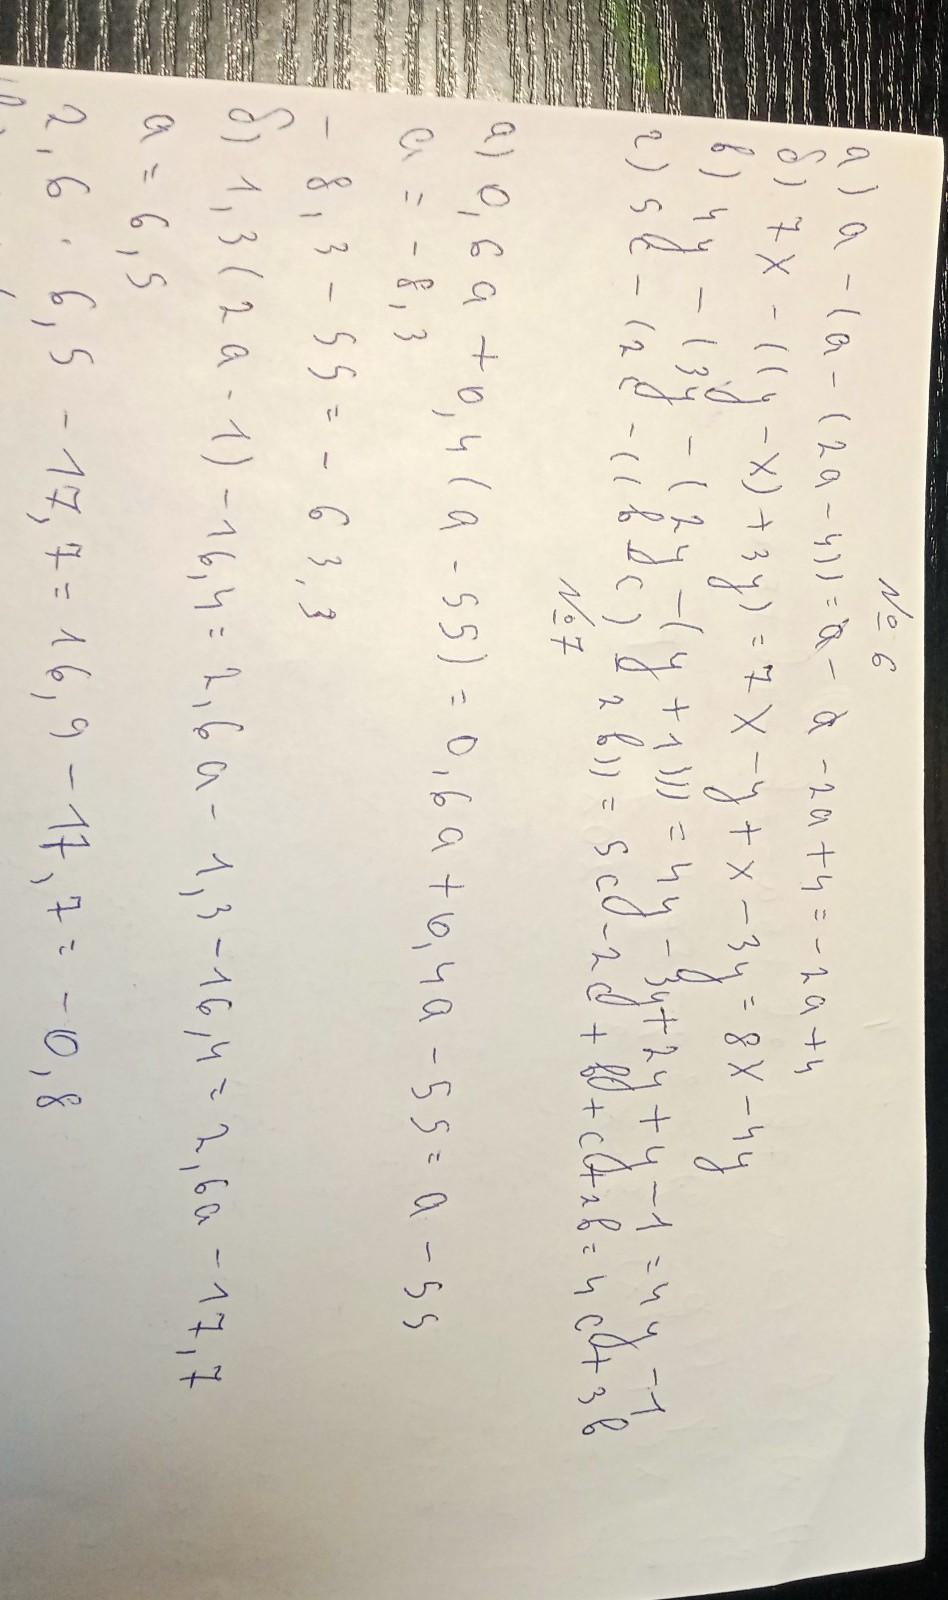 № 6
а) a - (a - (2a - 4)) = a - a - 2a + 4 = - 2a + 4
б) 7x - ((y - x) + 3y) = 7x - y + x - 3y = 8x - 4y
в) 4y - (3y - (2y - (y + 1))) = 4y - 3y + 2y + y - 1 = 4y - 1
г) 5c - (2c - ((b c) 2b)) = 5c - 2c + b + c + 2b = 4c + 3b
№ 7
а) 0,6a + 0,4(a - 55) = 0,6a + 0,4a - 55 = a - 55
a = - 8,3
- 8,3 - 55 = - 63,3
б) 1,3(2a - 1) - 16,4 = 2,6a - 1,3 - 16,4 = 2,6a - 17,7
a = 6,5
2,6 · 6,5 - 17,7 = 16,9 - 17,7 = - 0,8